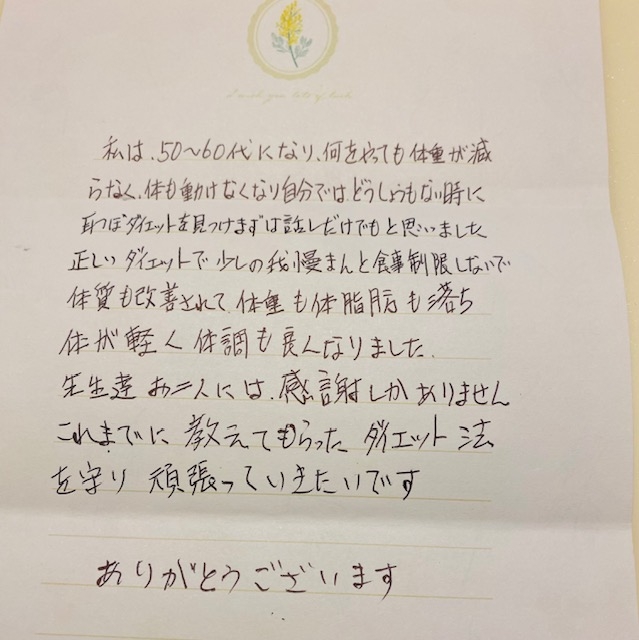 I wish you lots of luck
私は、50〜60代になり、何をやっても体重が減
らなく、体も動けなくなり自分では、どうしょうもない時に
耳つぼダイエットを見つけまずは話しだけでもと思いました
正しいダイエットで少しの我慢まんと食事制限しないで
体質も改善されて、体重も体脂肪も落ち
体が軽く体調も良くなりました、
先生達お二人には、感謝しかありません
これまでに教えてもらったダイエット法
を守り頑張っていきたいです
ありがとうございます